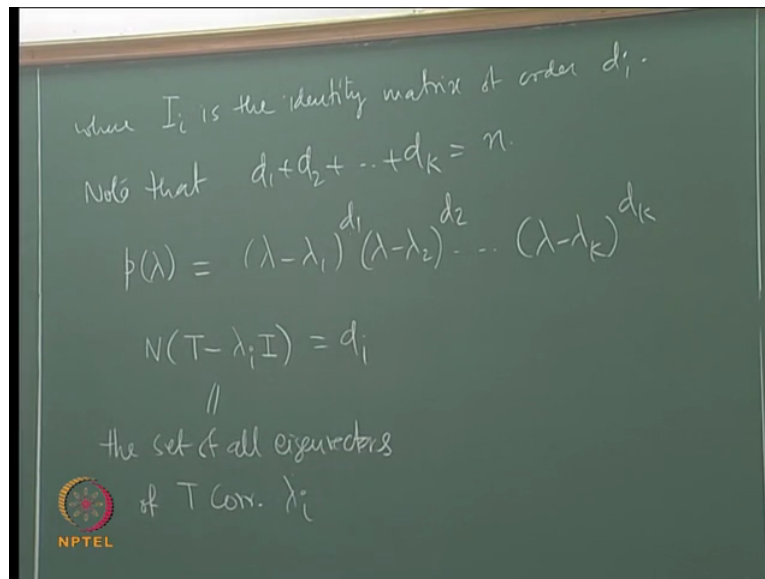 where I_i is the identity matrix of order d_i.
Note that d_1+d_2+...+d_k = n.
p(λ) = (λ-λ_1)^{d_1} (λ-λ_2)^{d_2} ... (λ-λ_k)^{d_k}
N(T-λ_i I) = d_i
||
the set of all eigenvectors
of T corr. λ_i
NPTEL